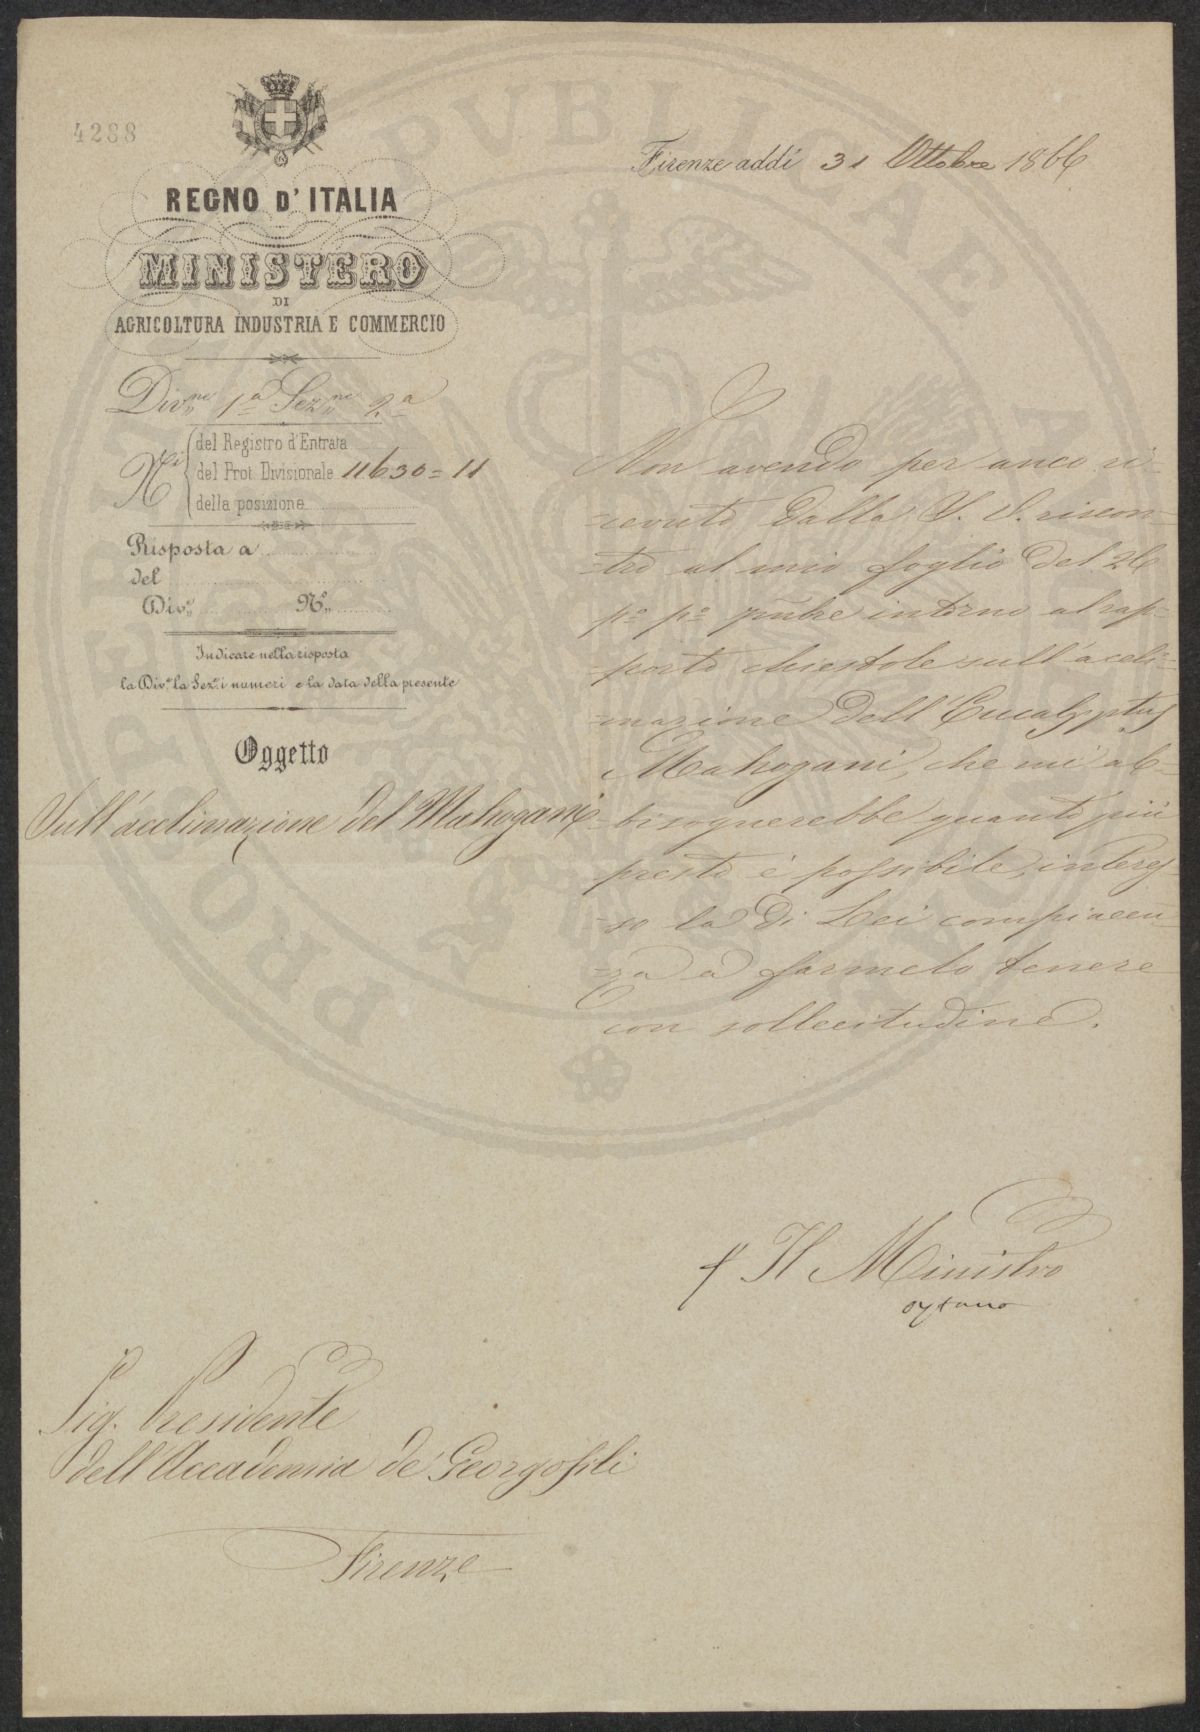 4288
Firenze addì 31 Ottobre 1866
REGNO D'ITALIA
MINISTERO
DI
AGRICOLTURA INDUSTRIA E COMMERCIO
Div.ne 1a Sez.ne 2a
N.i
del Registro d'Entrata
del Prot. Divisionale 11630=11
della posizione
Risposta a
del
Div.e N.o
Indicare nella risposta
la Div.e la Sez.e i numeri e la data della presente
Oggetto
Sull'acclimazione del Mahogani
Non avendo per anco ri-
=cevuto dalla S. V. riscon-
=tro al mio foglio del 26
p.o p.o 7mbre intorno al rap-
=porto chiestole sull'accli-
=mazione dell'Eucalyptus
Mahogani, che mi ab-
=bisognerebbe quanto più
presto è possibile, interes-
=so la di Lei compiacen-
=za a farmelo tenere
con sollecitudine.
Il Ministro
Sig. Presidente
dell'Accademia de' Georgofili
Firenze
PRO PUBLICAE